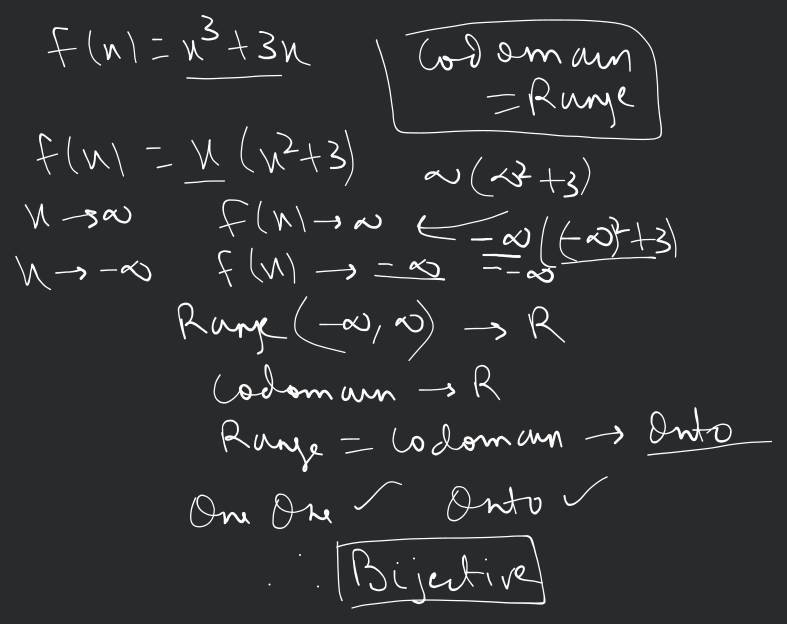 f(x) = x³ + 3x
Codomain
= Range
f(x) = x (x² + 3)
∞ (∞² + 3)
x → ∞ f(x) → ∞ ← -∞ ((-∞)² + 3)
x → -∞ f(x) → -∞ = -∞
Range (-∞, ∞) → R
Codomain → R
Range = Codomain → Onto
One One ✓ Onto ✓
∴ Bijective